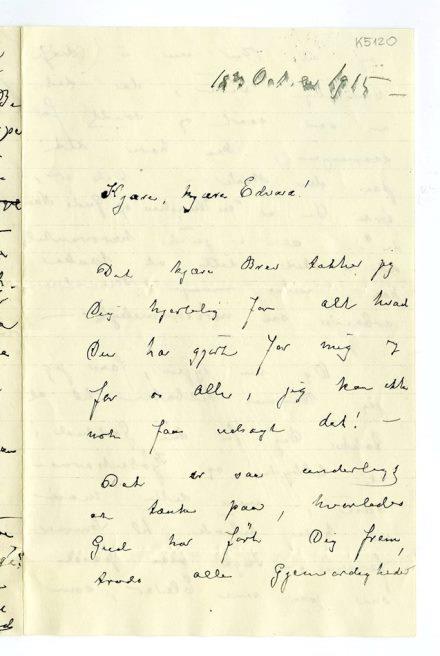 K5120
18de Oktober 1915 —
Kjære, kjære Edvard!
Det kjære Brev takker jeg
Dig hjertelig for alt hvad
Du har gjort for mig og
for os alle, jeg kan ikke
nok faa udsagt det! —
Det er saa underligt
at tænke paa, hvorledes
Gud har ført Dig frem,
trods alle Gjenvordigheder